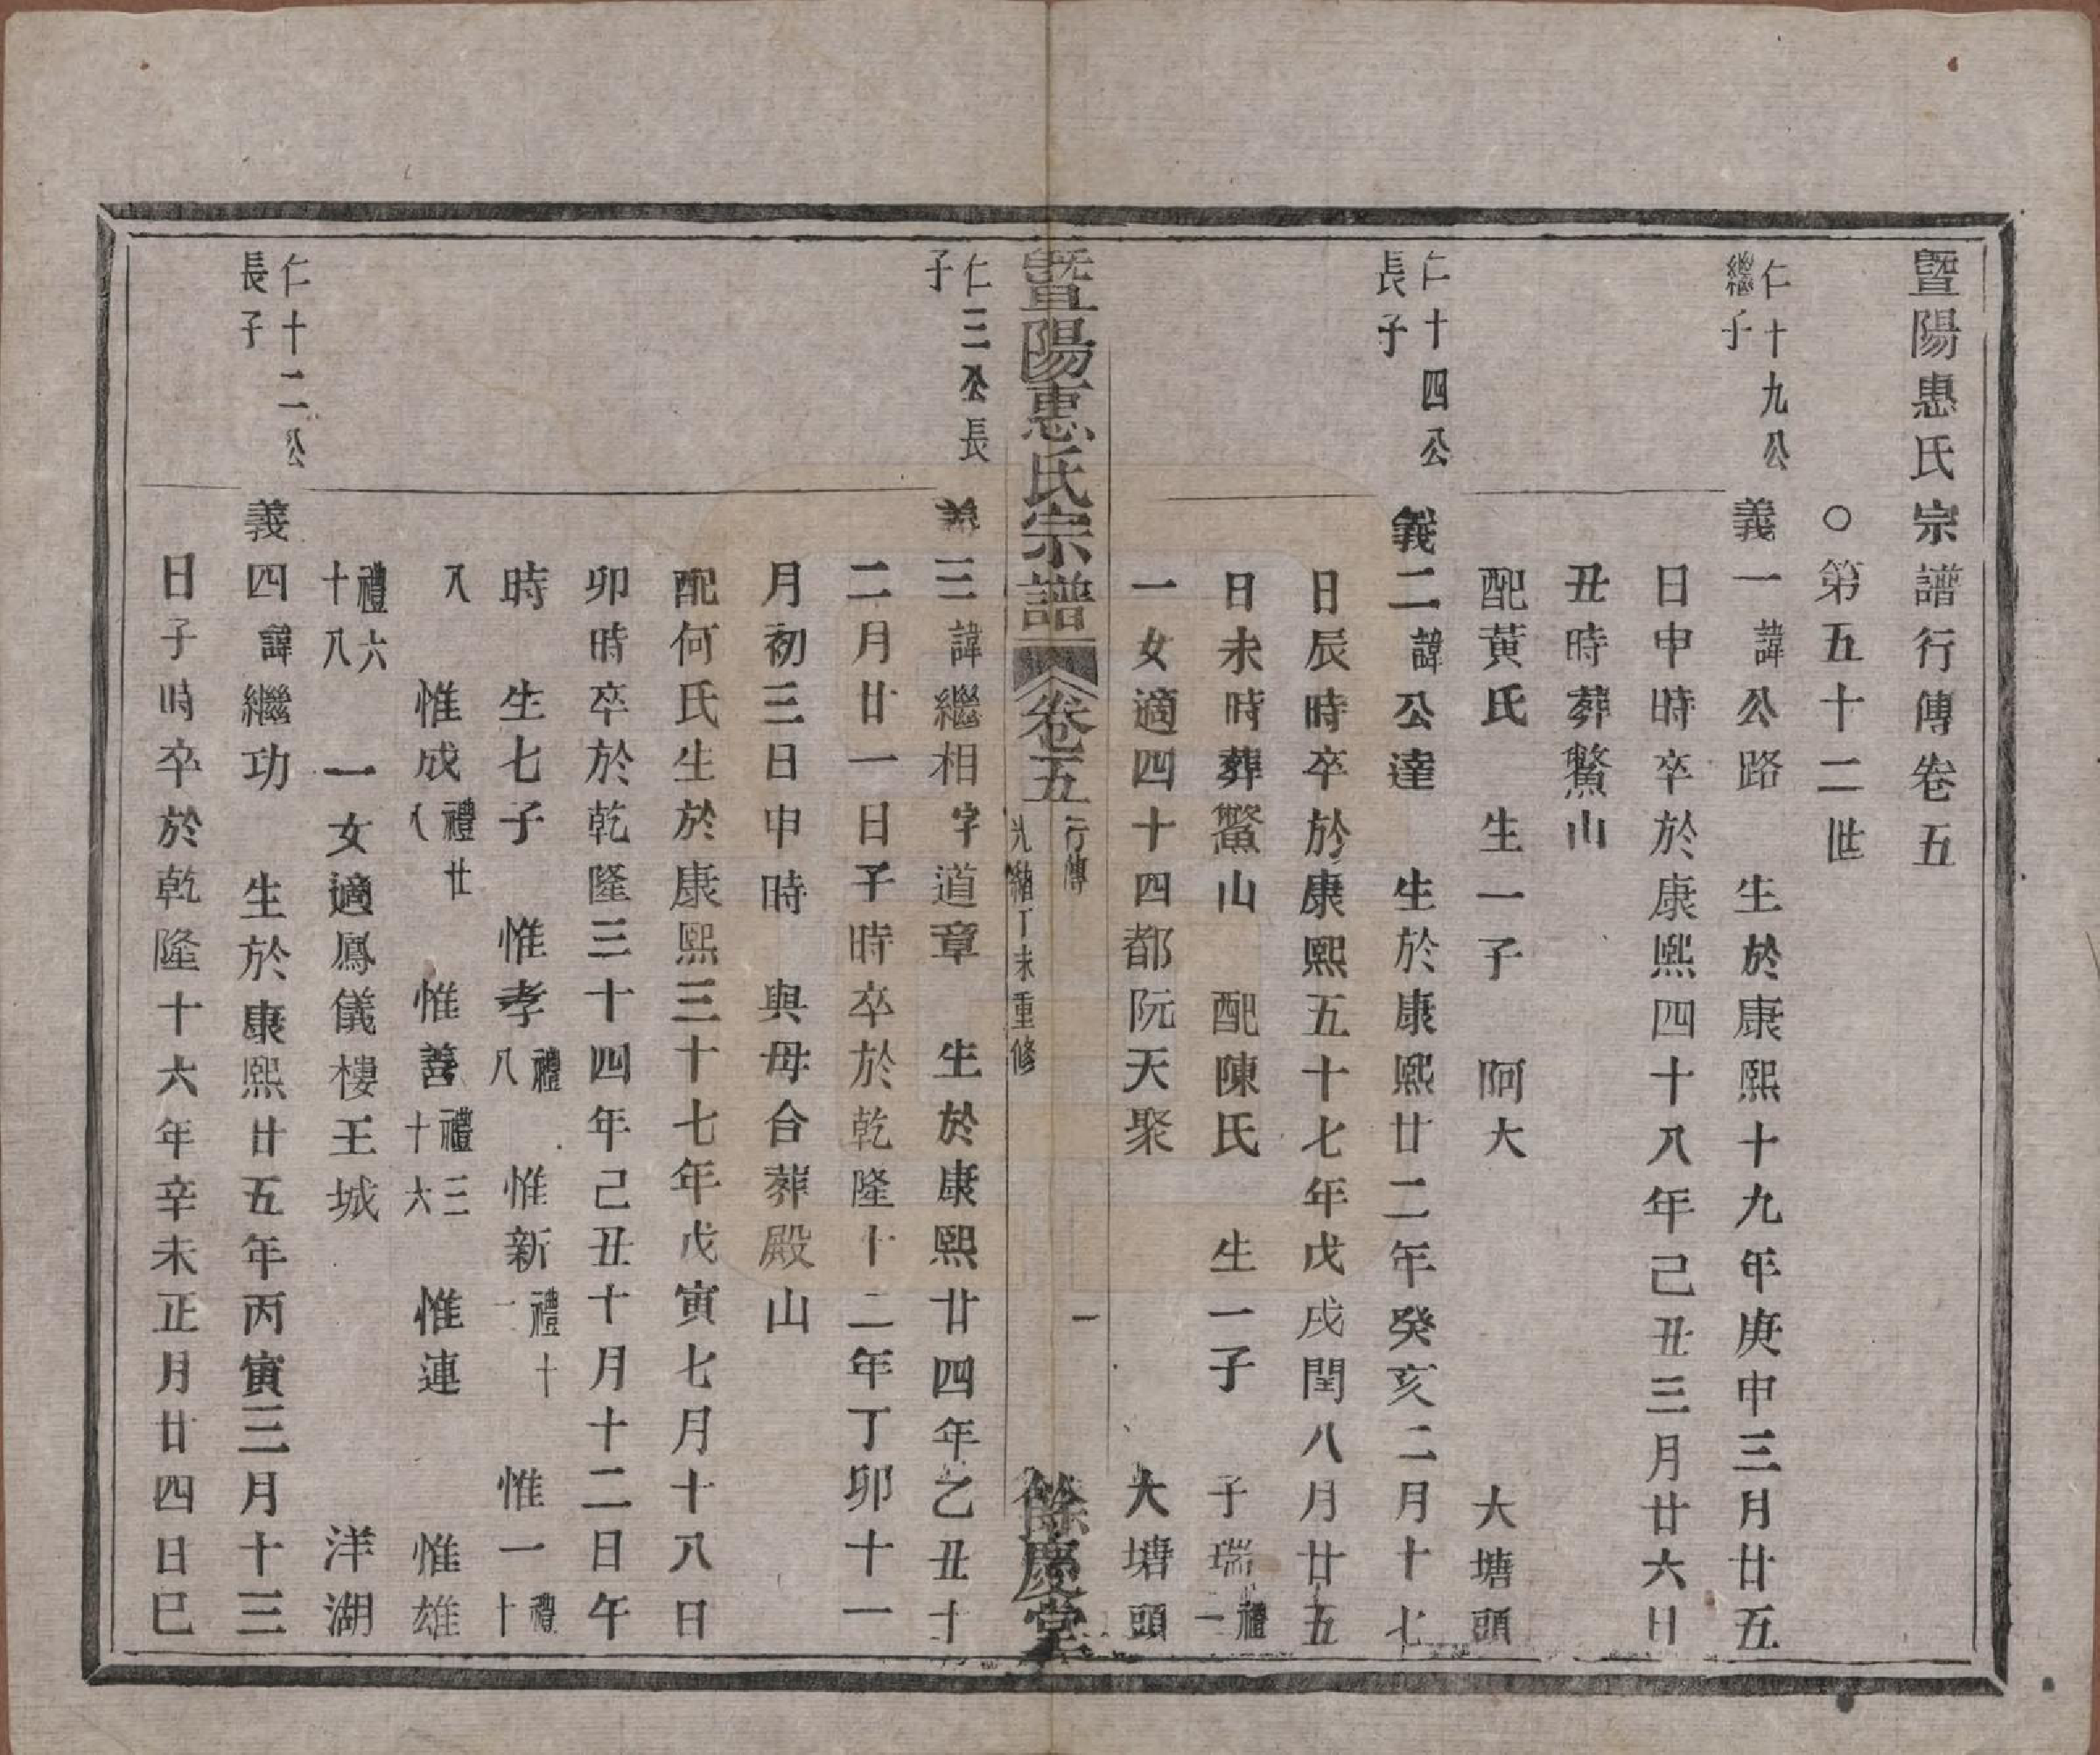 暨陽惠氏宗譜行傳卷五
○第五十二世
仁十九公
繼子
義一諱公路　生於康熙十九年庚申三月廿五
日申時卒於康熙四十八年己丑三月廿六日
丑時葬鰲山
配黃氏　生一子　阿大　大塘頭
仁十四公
長子
義二諱公達　生於康熙廿二年癸亥二月十七
日辰時卒於康熙五十七年戊戌閏八月廿五
日未時葬鰲山　配陳氏　生一子　子瑞禮一
一女適四十四都阮天聚　大塘頭
暨陽惠氏宗譜　卷五　行傳　一
光緒丁未重修　餘慶堂
仁三公長
子
義三諱繼相字道章　生於康熙廿四年乙丑十
二月廿一日子時卒於乾隆十二年丁卯十一
月初三日申時　與母合葬殿山
配何氏生於康熙三十七年戊寅七月十八日
卯時卒於乾隆三十四年己丑十月十二日午
時　生七子　惟孝禮八　惟新禮十一　惟一禮十
八　惟成禮廿八　惟善禮三十六　惟連　惟雄
禮六十八　一女適鳳儀樓王城　洋湖
仁十二公
長子
義四諱繼功　生於康熙廿五年丙寅三月十三
日子時卒於乾隆十六年辛未正月廿四日巳